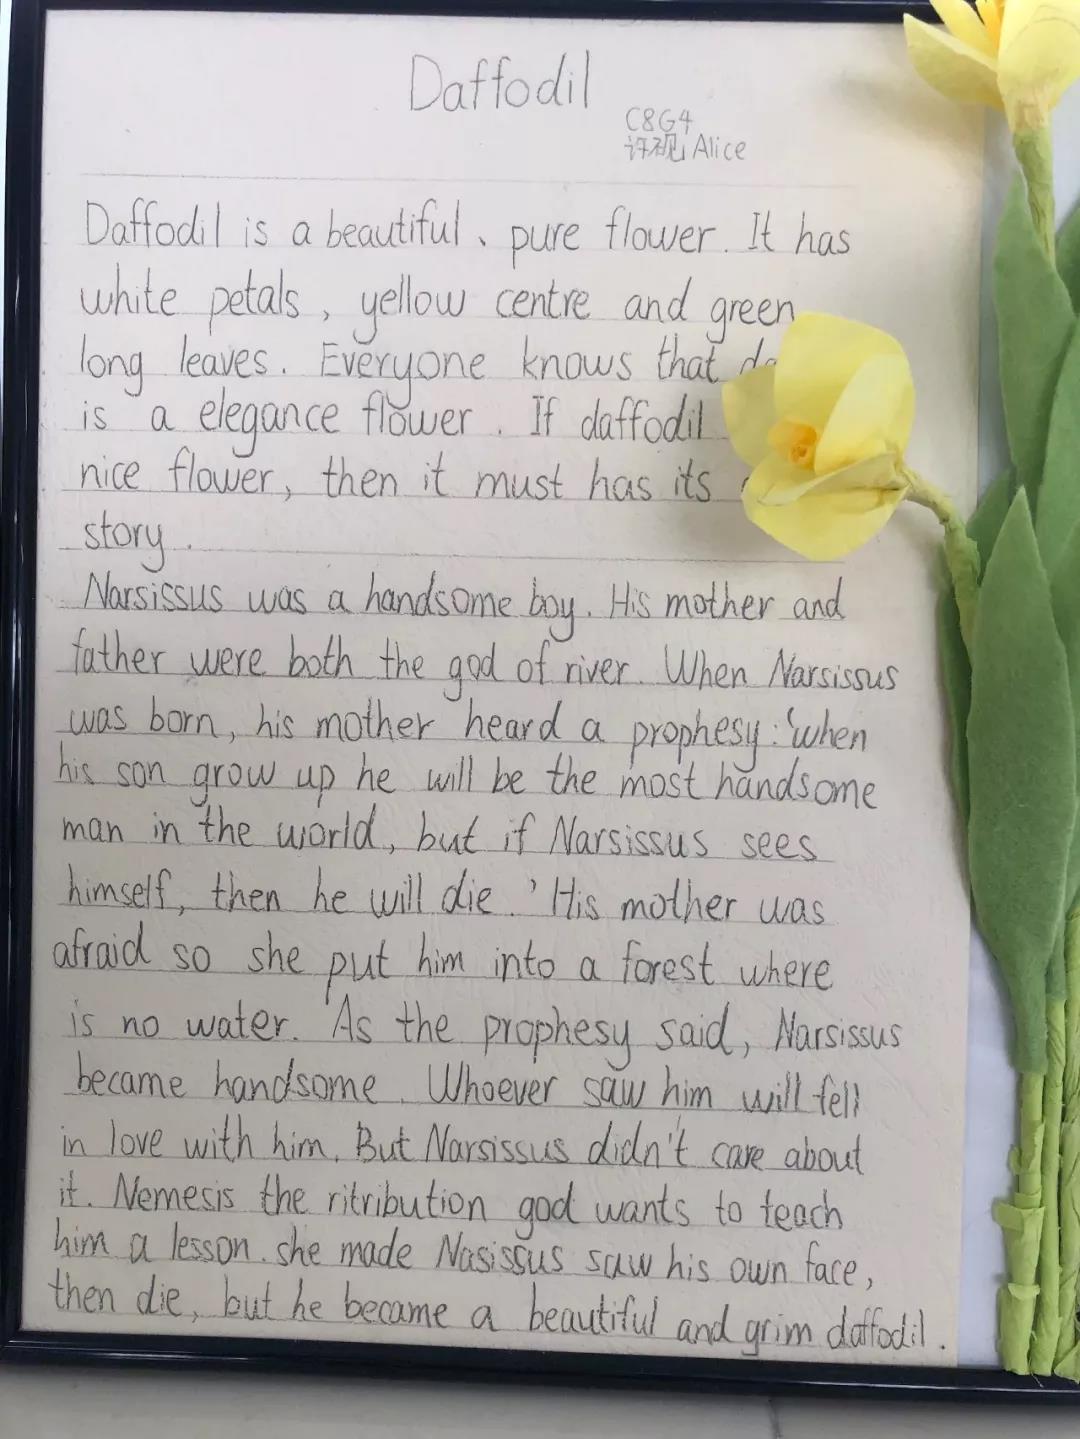 Daffodil
C8G4
许砚 Alice
Daffodil is a beautiful、pure flower. It has
white petals, yellow centre and green
long leaves. Everyone knows that
is a elegance flower. If daffodil
nice flower, then it must has its
story.
Narsissus was a handsome boy. His mother and
father were both the god of river. When Narsissus
was born, his mother heard a prophesy:‘when
his son grow up he will be the most handsome
man in the world, but if Narsissus sees
himself, then he will die.’His mother was
afraid so she put him into a forest where
is no water. As the prophesy said, Narsissus
became handsome. Whoever saw him will fell
in love with him. But Narsissus didn't care about
it. Nemesis the ritribution god wants to teach
him a lesson. she made Nasissus saw his own face,
then die, but he became a beautiful and grim daffodil.